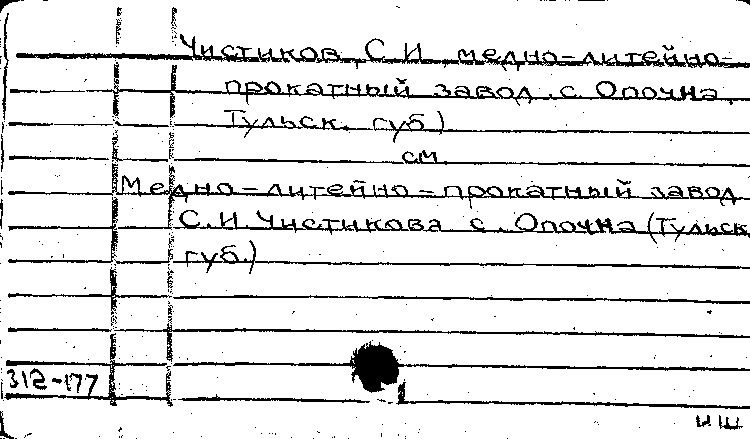 Чистиков, С.И. медно-литейно-
прокатный завод. с. Опочна,
Тульск. губ.)
см.
Медно-литейно-прокатный завод
С.И. Чистикова с. Опочна (Тульск.
губ.)
312-177
ИШ